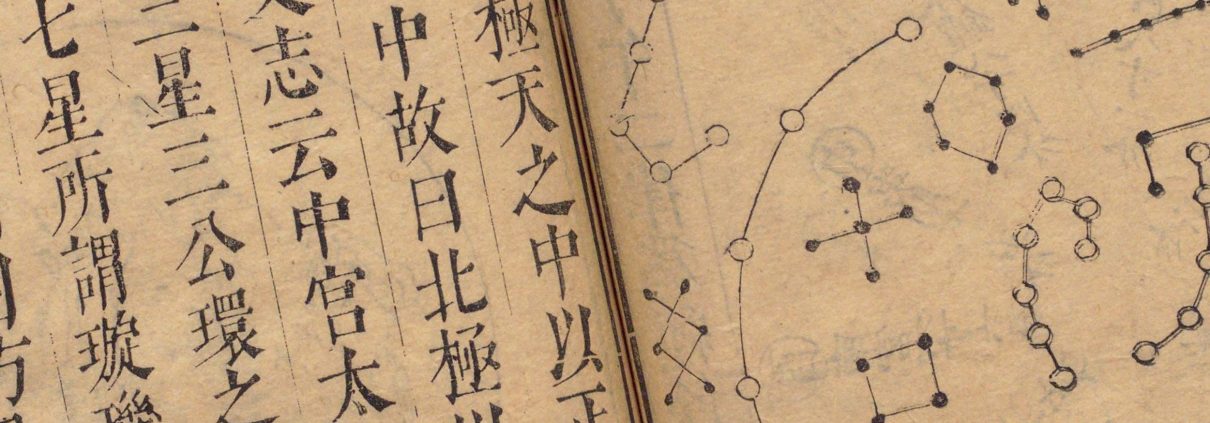 極天之中以正
中故曰北極
天志云中宮太
三星三公環之
七星所謂璇璣